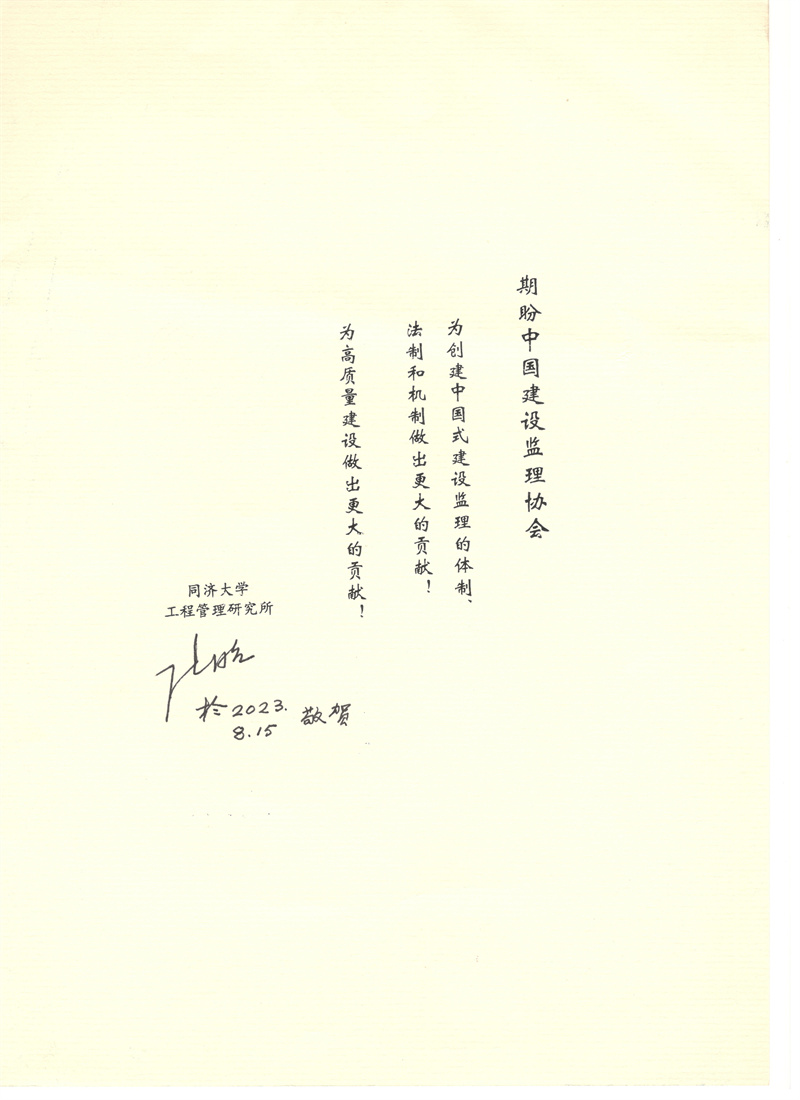 期盼中国建设监理协会
为创建中国式建设监理的体制、
法制和机制做出更大的贡献！
为高质量建设做出更大的贡献！
同济大学
工程管理研究所
於2023.
8.15
敬贺